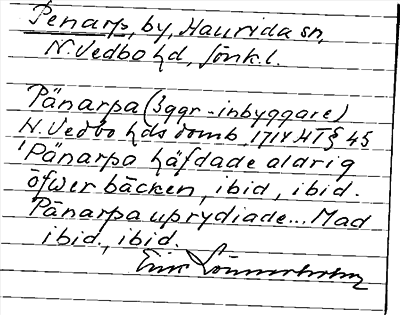 Penarp, by, Haurida sn,
N. Vedbo hd, Jönk. l.
Pänarpa (3 ggr - inbyggare)
N. Vedbo hds domb. 1717 HT § 45
'Pänarpa häfdade aldrig
öfwer bäcken, ibid, ibid.
Pänarpa uprydiade... Mad
ibid., ibid.
Erik